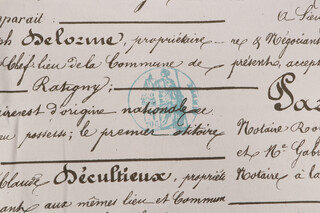 pparait.
ph Delorme, propriétaire
Chef-lieu de la Commune de
Ratigny;
d'origine nationale
au possessi; le premier
Claude Décultieux, proprieté
ant aux mêmes lieu et Commun
a Lieu
re & Négociant
présents, accep
Par
Notaire Ro
et Me Gab
Notaire à la